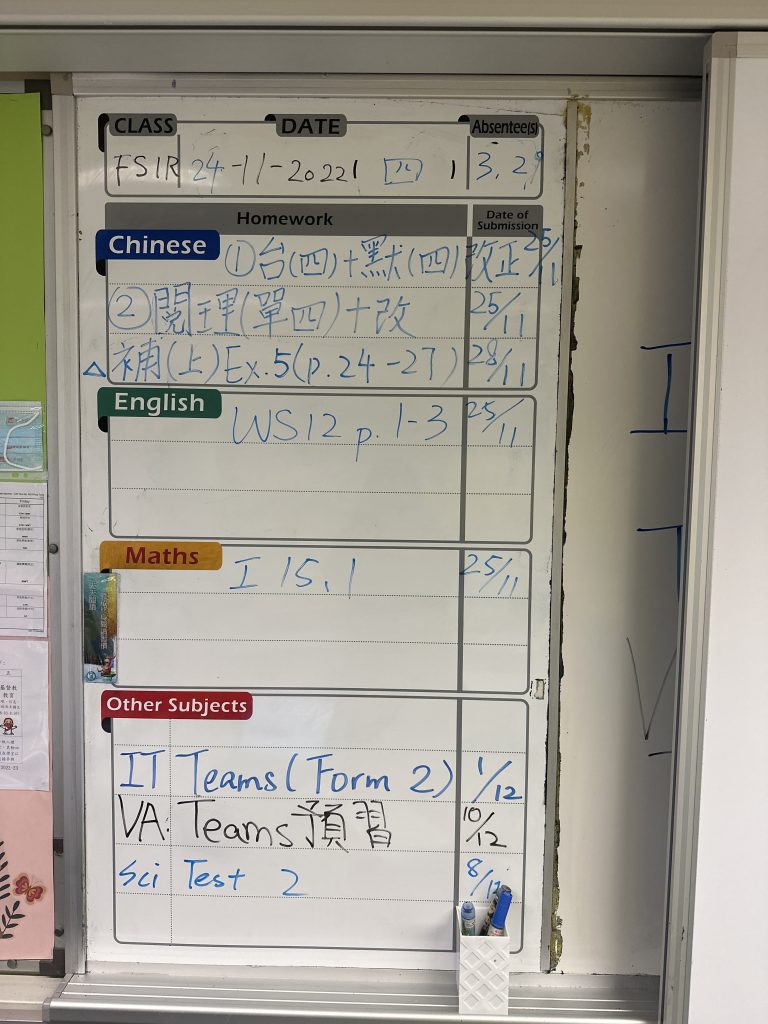 CLASS DATE Absentee(s)
FS1R 24-11-2022 ( 四 ) 3, 29
Homework Date of Submission
Chinese ①台(四)+默(四)改正 25/11
②閱理(單四)+改 25/11
△補(上)Ex.5(p.24-27) 28/11
English
WS12 p. 1-3 25/11
Maths
I 15.1 25/11
Other Subjects
IT Teams (Form 2) 1/12
VA: Teams預習 10/12
Sci Test 2 8/12
Friday